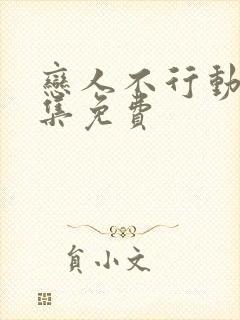 戀人不行動
集免費
負小文